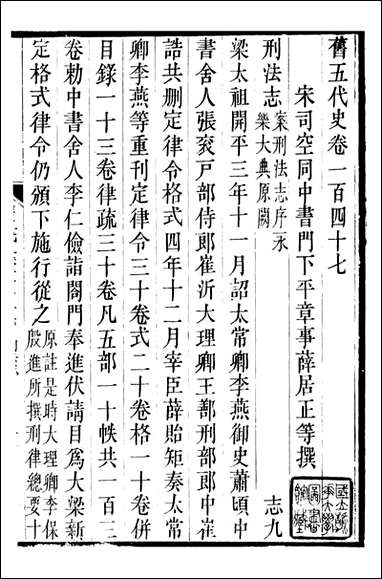 舊五代史卷一百四十七
宋司空同中書門下平章事薛居正等撰
刑法志 案刑法志序永樂大典原闕 志九
梁太祖開平三年十一月詔太常卿李燕御史蕭頃中
書舍人張衮戸部侍郎崔沂大理卿王鄯刑部郎中崔
誥共刪定律令格式四年十二月宰臣薛貽矩奏太常
卿李燕等重刊定律令三十卷式二十卷格一十卷併
目錄一十三卷律疏三十卷凡五部一十帙共一百三
卷勅中書舍人李仁儉詣閤門奉進伏請目爲大梁新
定格式律令仍頒下施行從之 原註是時大理卿李保殷進所撰刑律總要十